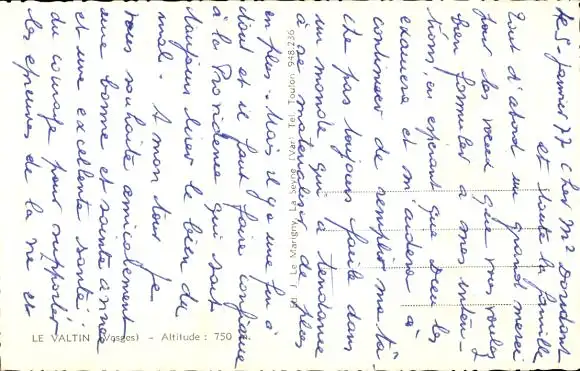 le 5 - janvier 77 Cher Mr Dordant
et toute la famille
Tout d'abord un grand merci
pour les voeux que vous voulez
bien formuler a mes inten-
tions, en espérant que Dieu les
exaucera et m'aidera à
continuer de remplir ma tâ
che pas toujours facile dans
un monde qui a tendance
à se matérialiser de plus
en plus. Mais il y a une fin à
tout et il faut faire confiance
à la Providence qui sait
toujours tirer le bien du
mal. A mon tour je
vous souhaite amicalement
une bonne et sainte année
et une excellente santé
du courage pour supporter
les épreuves de la vie et
Le Marigny, La Seyne (Var) Tel. Toulon 948.236
LE VALTIN (Vosges) - Altitude : 750